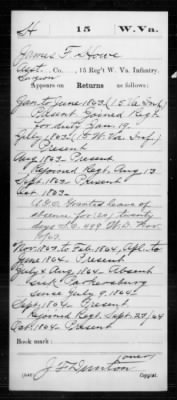 H 15 W.Va.
James F. Howe
Asst. Surgeon Co., 15 Reg't W. Va. Infantry.
Appears on Returns as follows:
Jan. to June 1863 (15 Va. Inf.)
Present Joined Regt.
for duty Jan. 19.
July 1863 (15 W. Va. Inf.)
Present
Aug. 1863 Present
Returned Regt. Aug. 13
Sept. 1863 Present
Oct. 1863
Granted leave of
absence for (20) twenty
days S.O. 499 W.D. Nov.
Nov. 1863 to Feb. 1864, Apl. to
June 1864. Present
July & Aug. 1864. Absent
sick Parkersburg
since July 9, 1864
Sept. 1864. Present
Returned Regt. Sept. 23/64
Oct. 1864. Present
Book mark:
(over)
J. F. Dunton
Copyist.